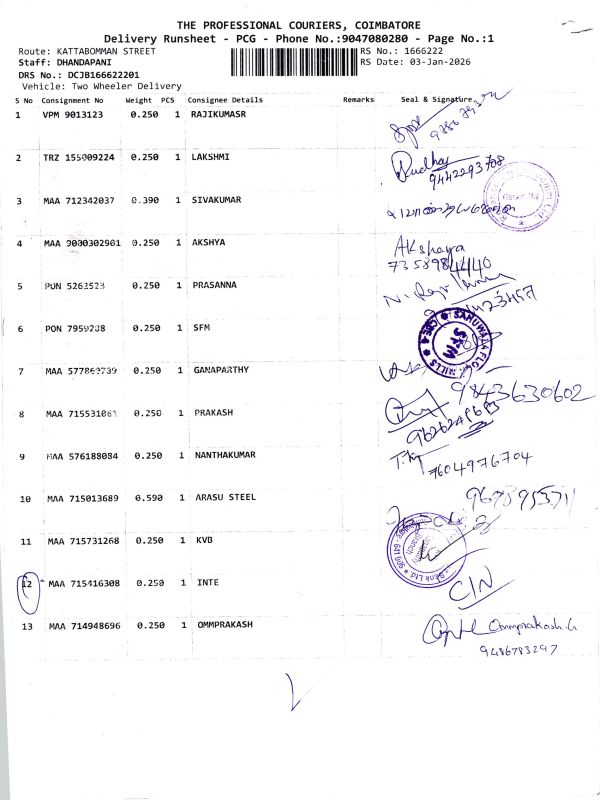 THE PROFESSIONAL COURIERS, COIMBATORE
Delivery Runsheet - PCG - Phone No.:9047080280 - Page No.:1
Route: KATTABOMMAN STREET RS No.: 1666222
Staff: DHANDAPANI RS Date: 03-Jan-2026
DRS No.: DCJB166622201
Vehicle: Two Wheeler Delivery
S No Consignment No Weight PCS Consignee Details Remarks Seal & Signature
1 VPM 9013123 0.250 1 RAJIKUMASR
2 TRZ 155009224 0.250 1 LAKSHMI
9442293708
3 MAA 712342037 0.390 1 SIVAKUMAR
4 MAA 9000302901 0.250 1 AKSHYA Akshaya
7358984440
5 PON 5262523 0.250 1 PRASANNA
6 PON 0.250 1 SFM
SFM
7 MAA 0.250 1 GANAPARTHY
9843630602
8 MAA 0.250 1 PRAKASH
9 MAA 576188084 0.250 1 NANTHAKUMAR
7604976704
10 MAA 715013689 0.590 1 ARASU STEEL
11 MAA 715731268 0.250 1 KVB
12 MAA 715416308 0.250 1 INTE CIN
13 MAA 714948696 0.250 1 OMMPRAKASH Ommprakash.G
9486783297